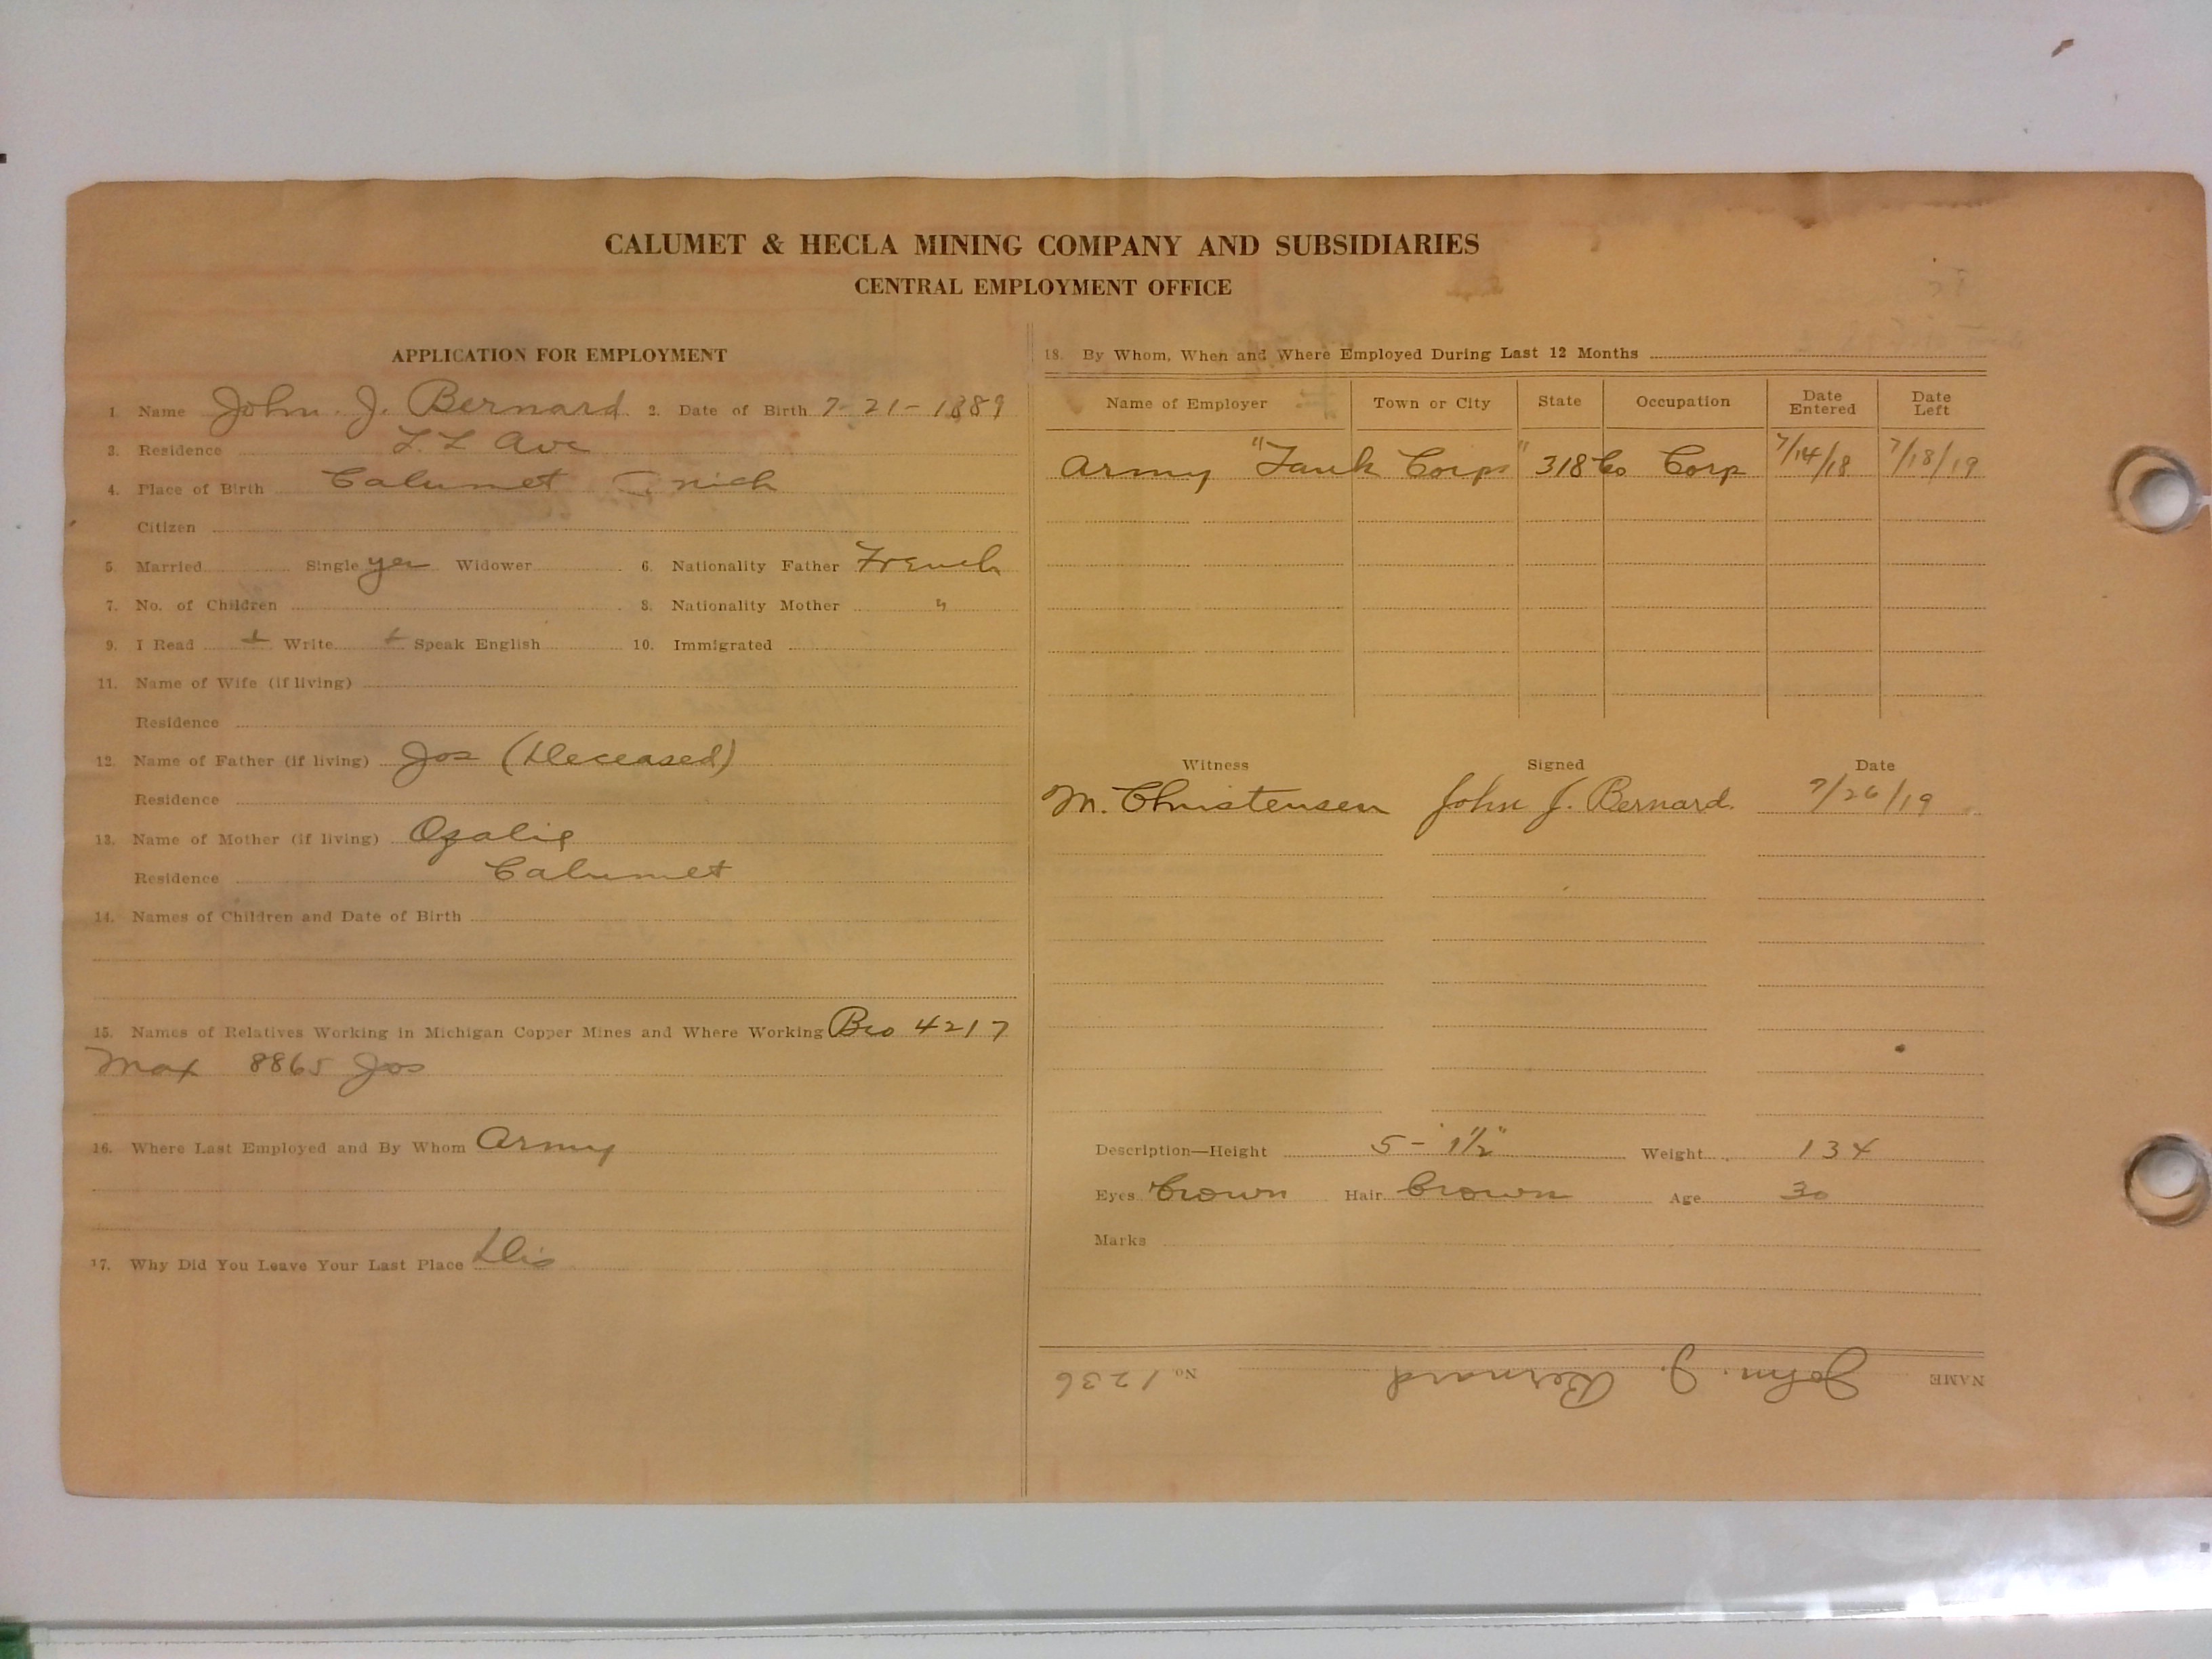 CALUMET & HECLA MINING COMPANY AND SUBSIDIARIES
CENTRAL EMPLOYMENT OFFICE
APPLICATION FOR EMPLOYMENT
1. Name John. J. Bernard 2. Date of Birth 7-21-1889
3. Residence L. L Ave
4. Place of Birth Calumet Mich
Citizen
5. Married Single yes Widower 6. Nationality Father French
7. No. of Children 8. Nationality Mother "
9. I Read + Write + Speak English 10. Immigrated
11. Name of Wife (if living)
Residence
12. Name of Father (if living) Jos (Deceased)
Residence
13. Name of Mother (if living) Ozalie
Residence Calumet
14. Names of Children and Date of Birth
15. Names of Relatives Working in Michigan Copper Mines and Where Working Bro 4217
Max 8865 Jos
16. Where Last Employed and By Whom Army
17. Why Did You Leave Your Last Place Dis
18. By Whom, When and Where Employed During Last 12 Months
Name of Employer Town or City State Occupation Date Entered Date Left
Army "Tank Corps" 318 Co Corp 7/14/18 7/18/19
Witness Signed Date
M. Christensen John J. Bernard. 7/26/19
Description—Height 5-1½" Weight 134
Eyes Brown Hair Brown Age 30
Marks
NAME John. J. Bernard No. 1236